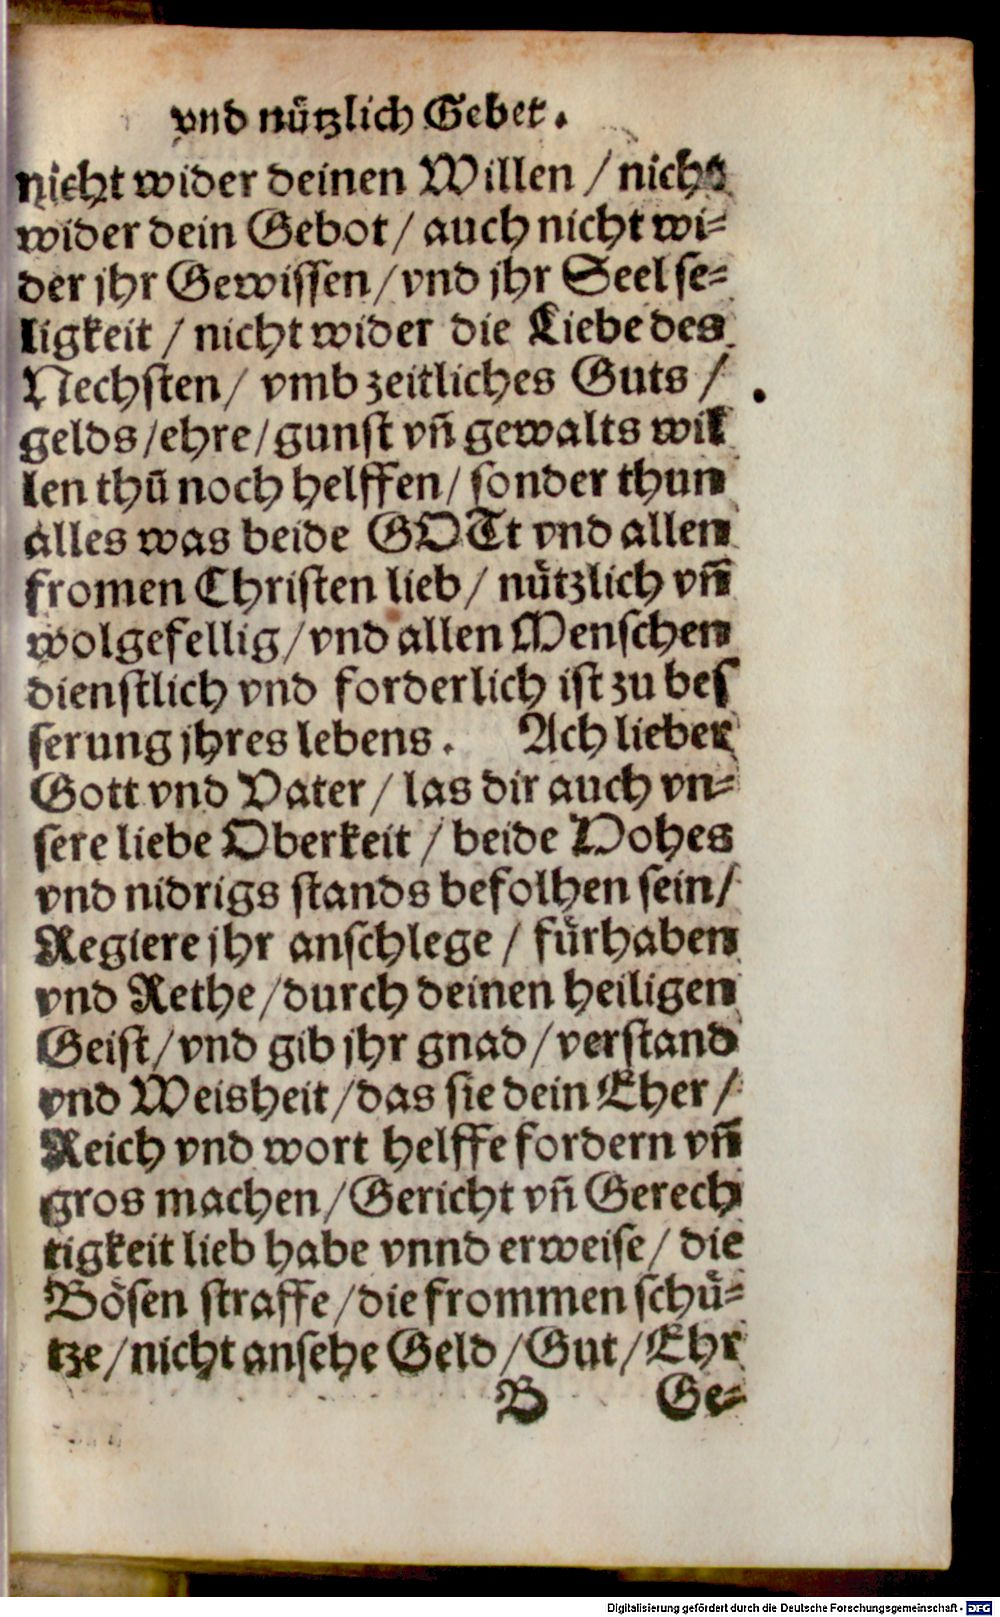 vnd nützlich Gebet.
nicht wider deinen Willen / nicht
wider dein Gebot / auch nicht wi-
der jhr Gewissen / vnd jhr Seel se-
ligkeit / nicht wider die Liebe des
Nechsten / vmb zeitliches Guts /
gelds / ehre / gunst vñ gewalts wil
len thũ noch helffen / sonder thun
alles was beide GOTt vnd allen
fromen Christen lieb / nützlich vñ
wolgefellig / vnd allen Menschen
dienstlich vnd forderlich ist zu bes
serung jhres lebens. Ach lieber
Gott vnd Vater / las dir auch vn-
sere liebe Oberkeit / beide Hohes
vnd nidrigs stands befolhen sein /
Regiere jhr anschlege / fürhaben
vnd Rethe / durch deinen heiligen
Geist / vnd gib jhr gnad / verstand
vnd Weisheit / das sie dein Eher /
Reich vnd wort helffe fordern vñ
gros machen / Gericht vñ Gerech
tigkeit lieb habe vnnd erweise / die
Bösen straffe / die frommen schü-
tze / nicht ansehe Geld / Gut / Ehr
B Ge-
Digitalisierung gefördert durch die Deutsche Forschungsgemeinschaft - DFG